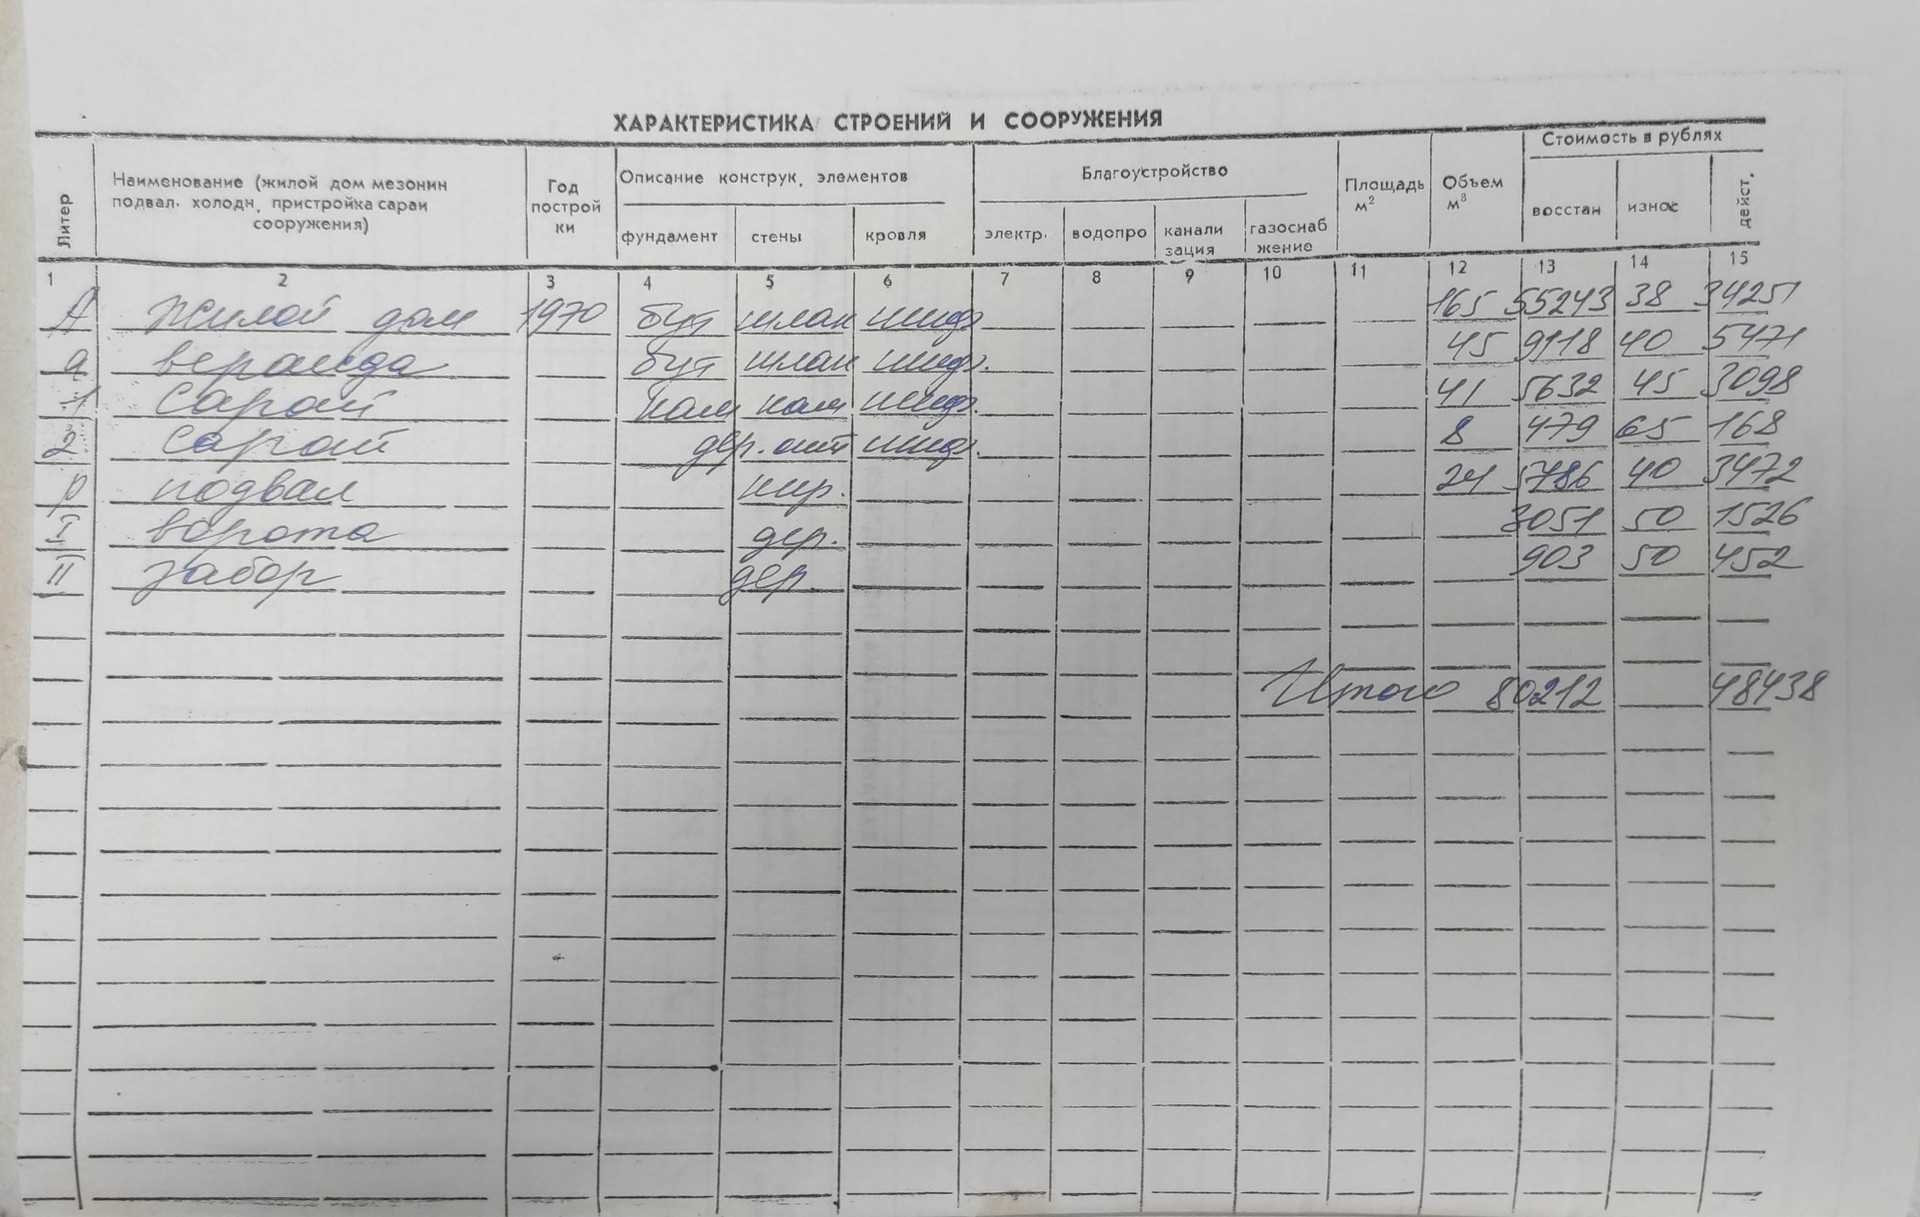 ХАРАКТЕРИСТИКА СТРОЕНИЙ И СООРУЖЕНИЯ
Литер
Наименование (жилой дом мезонин
подвал. холодн, пристройка сараи
сооружения)
Год
построй
ки
Описание конструк, элементов
фундамент стены кровля
Благоустройство
электр. водопро канали
зация
газоснаб
жение
Площадь
м²
Объем
м³
Стоимость в рублях
восстан износ дейст.
1 2 3 4 5 6 7 8 9 10 11 12 13 14 15
А Жилой дом 1970 бут шлак шиф. 165 55243 38 34251
а веранда бут шлак шиф. 45 9118 40 5471
1 Сарай кам кам шиф. 41 5632 45 3098
2 Сарай дер. шиф. 8 479 65 168
р подвал кир. 24 5786 40 3472
I ворота дер. 3051 50 1526
II забор дер. 903 50 452
Итого 80212 48438